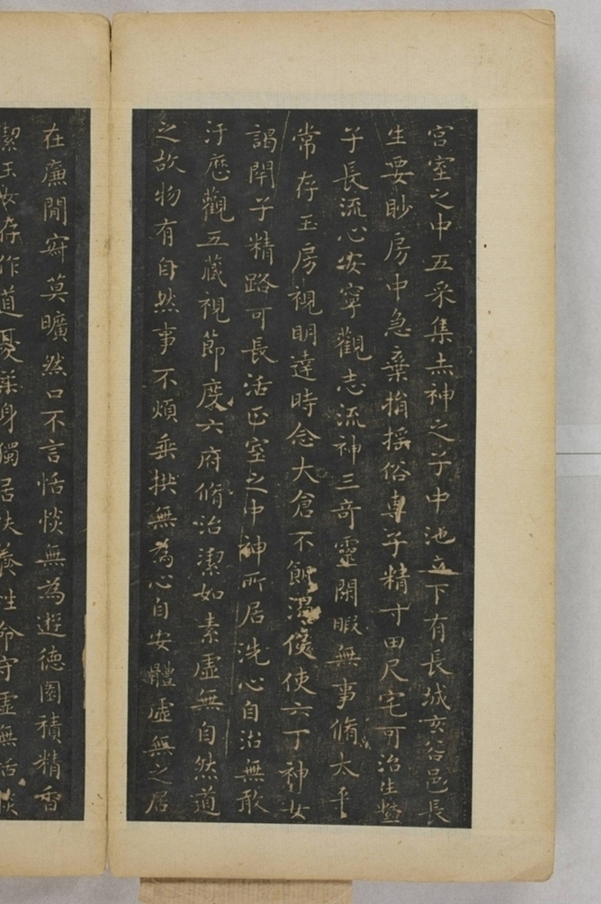 宮室之中五采集赤神之子中池立下有長城玄谷邑長
生要眇房中急棄捐搖俗專子精寸田尺宅可治生繫
子長流心安寧觀志流神三奇靈閑暇無事脩太平
常存玉房視明達時念大倉不飢渴役使六丁神女
謁閉子精路可長活正室之中神所居洗心自治無敢
汙歷觀五藏視節度六府脩治潔如素虛無自然道
之故物有自然事不煩垂拱無為心自安體虛無之居
在廉間寂莫曠然口不言恬惔無為遊德園積精香
潔玉女存作道憂柔身獨居扶養性命守虛無恬惔